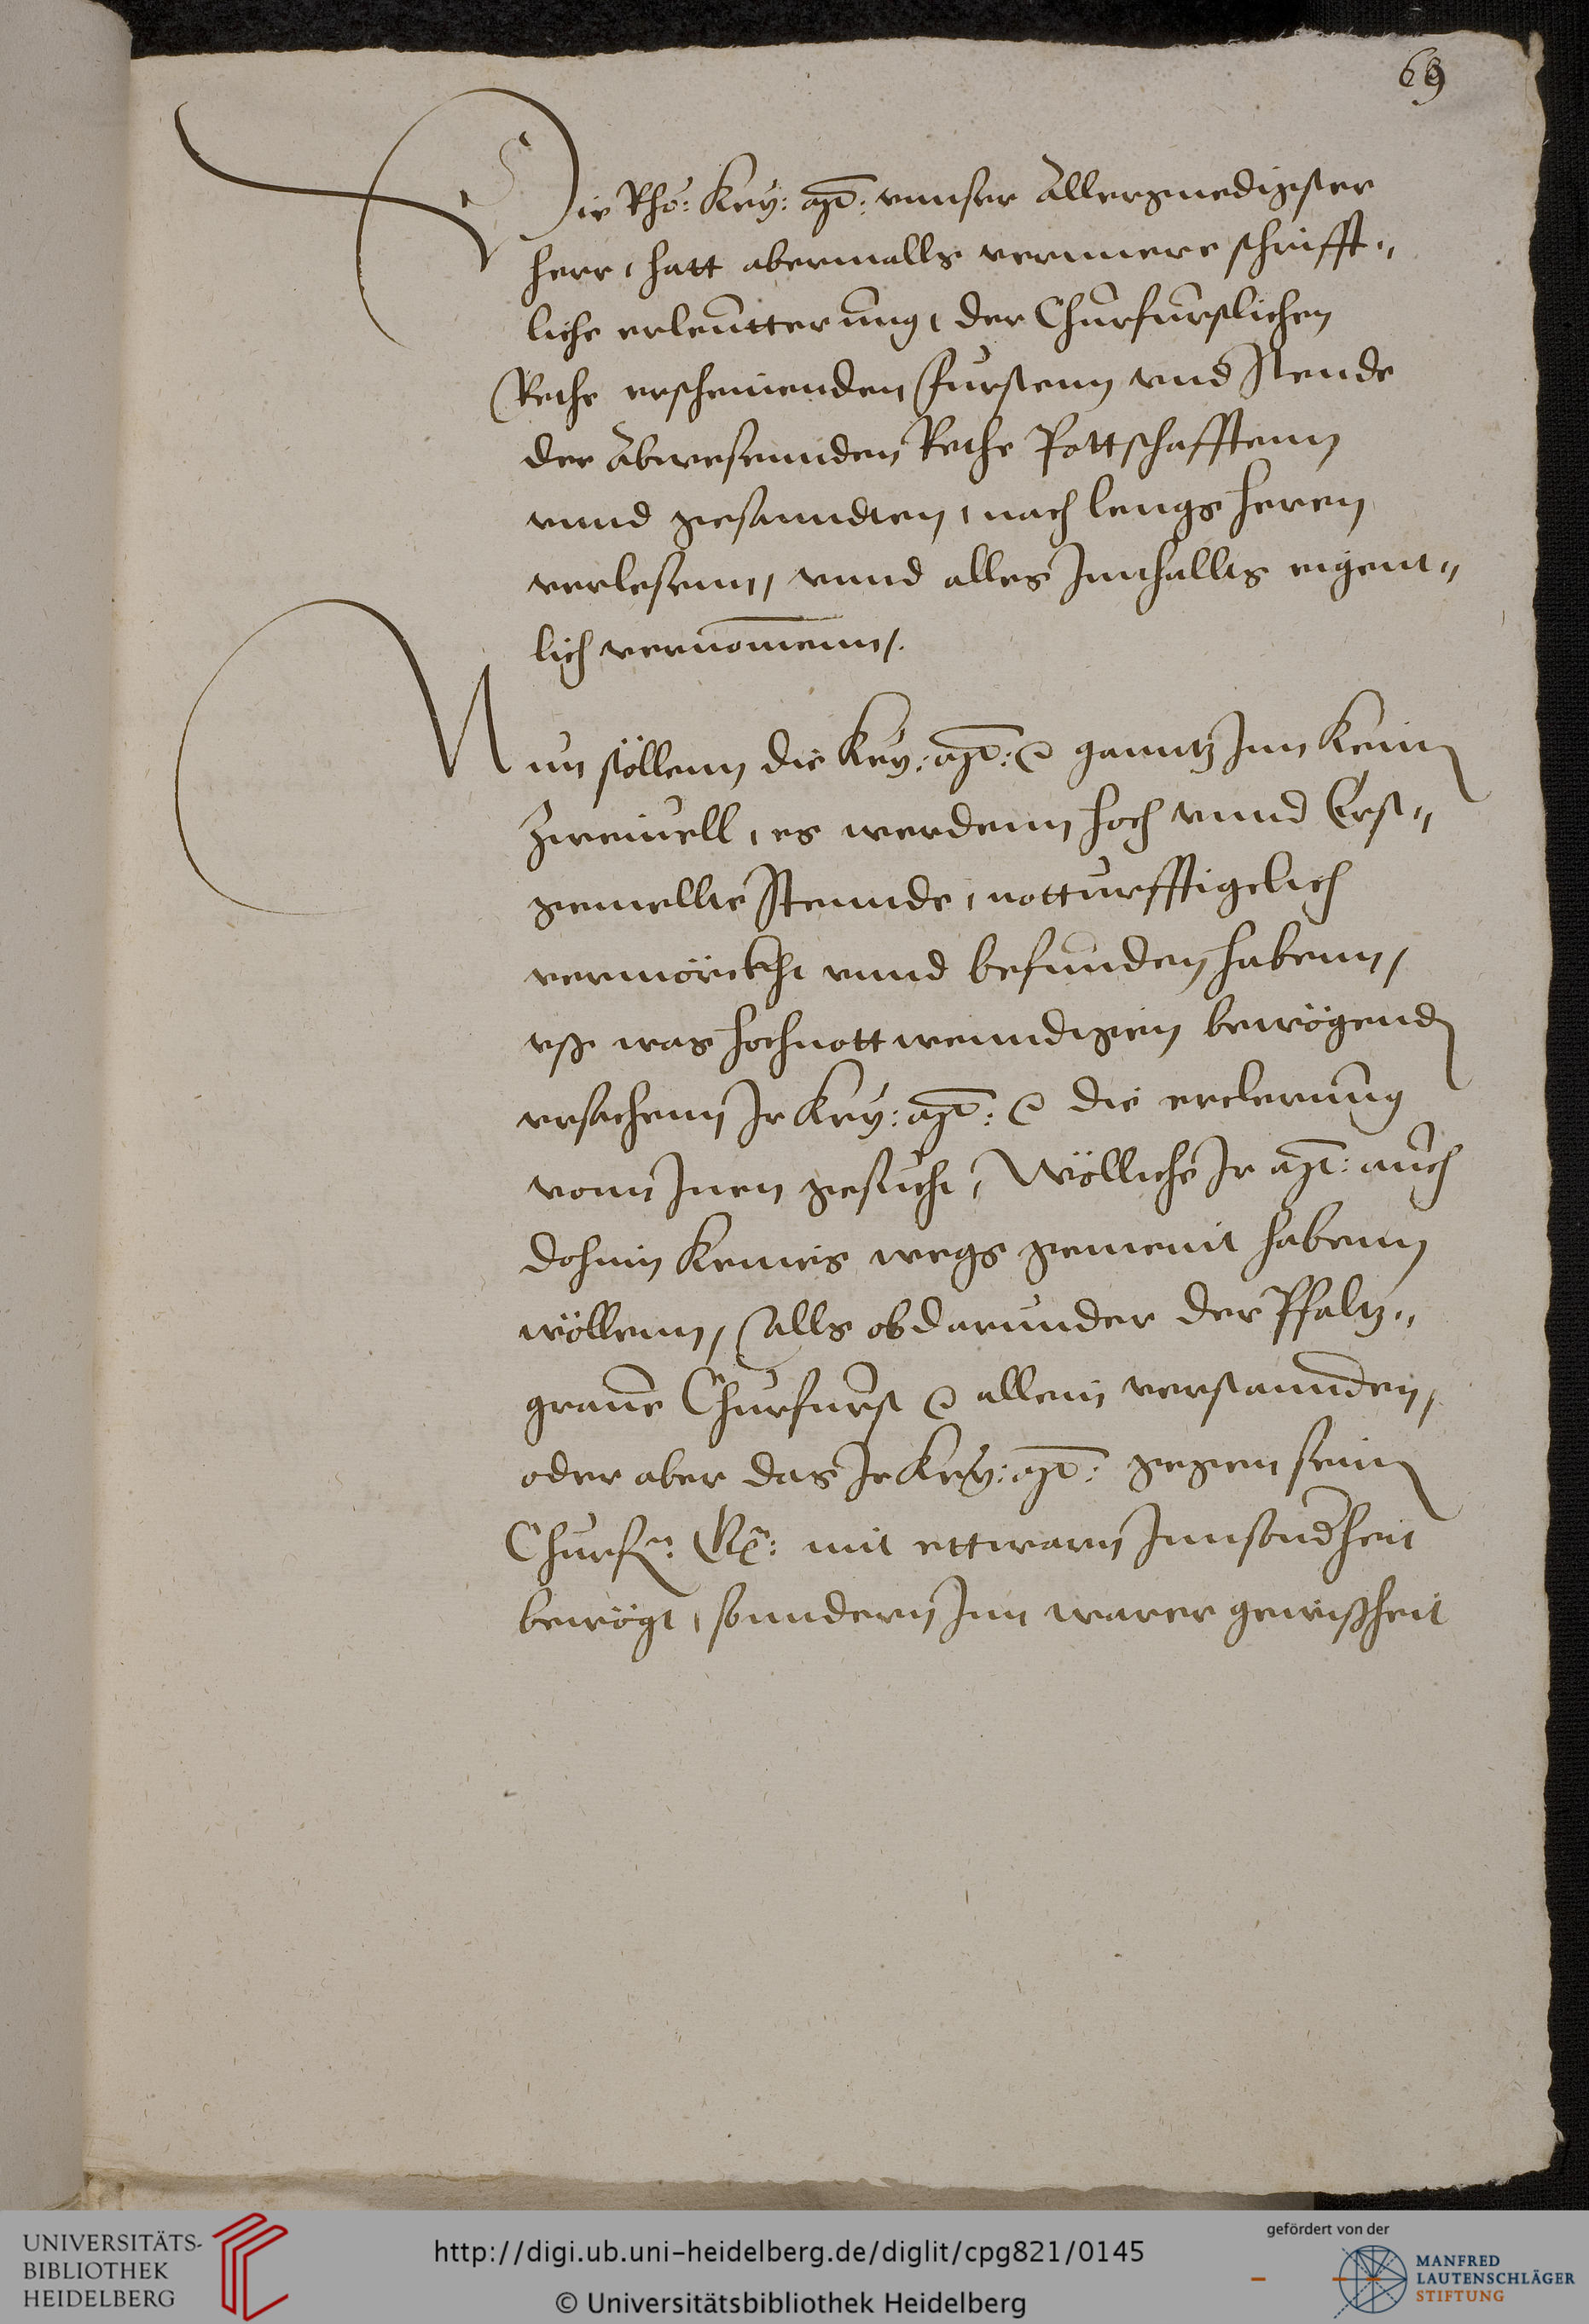 69
Die Rho: Key: Mt: vnnser Allergnedigster
herr, hatt abermalls vernnere schrifft-
liche erleutterung, der Churfurstlichen
Rethe erscheinenden Furstenn vnd Stende
der Abwesennden Rethe Pottschafftenn
vnnd gesanndten, nach lengs heren
verlesenn, vnnd alles Innhallts eigent-
lich vernomenn/.
Nun söllenn die Key: Mt: ganntz Inn kein
Zweiuell, es werdenn hoch vnnd Erst-
gemellte Stennde, notturfftigelich
vermörckht vnnd befunden habenn,
vß was hochnottwenndigen bewögend
vrsachenn Ir Key: Mt: die erclerung
vonn Inen gesucht, Wölliche Ir Mt: auch
dohin keines wegs gemeint habenn
wöllenn, alls ob darunder der Pfaltz-
graue Churfurst allein verstannden,
oder aber das Ir Key: Mt: gegen sein
Churf: G: mit ettwarn Innsonderheit
bewögt, sonndern Inn warer gewißheit
UNIVERSITÄTS-
BIBLIOTHEK
HEIDELBERG
http://digi.ub.uni-heidelberg.de/diglit/cpg821/0145
© Universitätsbibliothek Heidelberg
gefördert von der
MANFRED
LAUTENSCHLÄGER
STIFTUNG